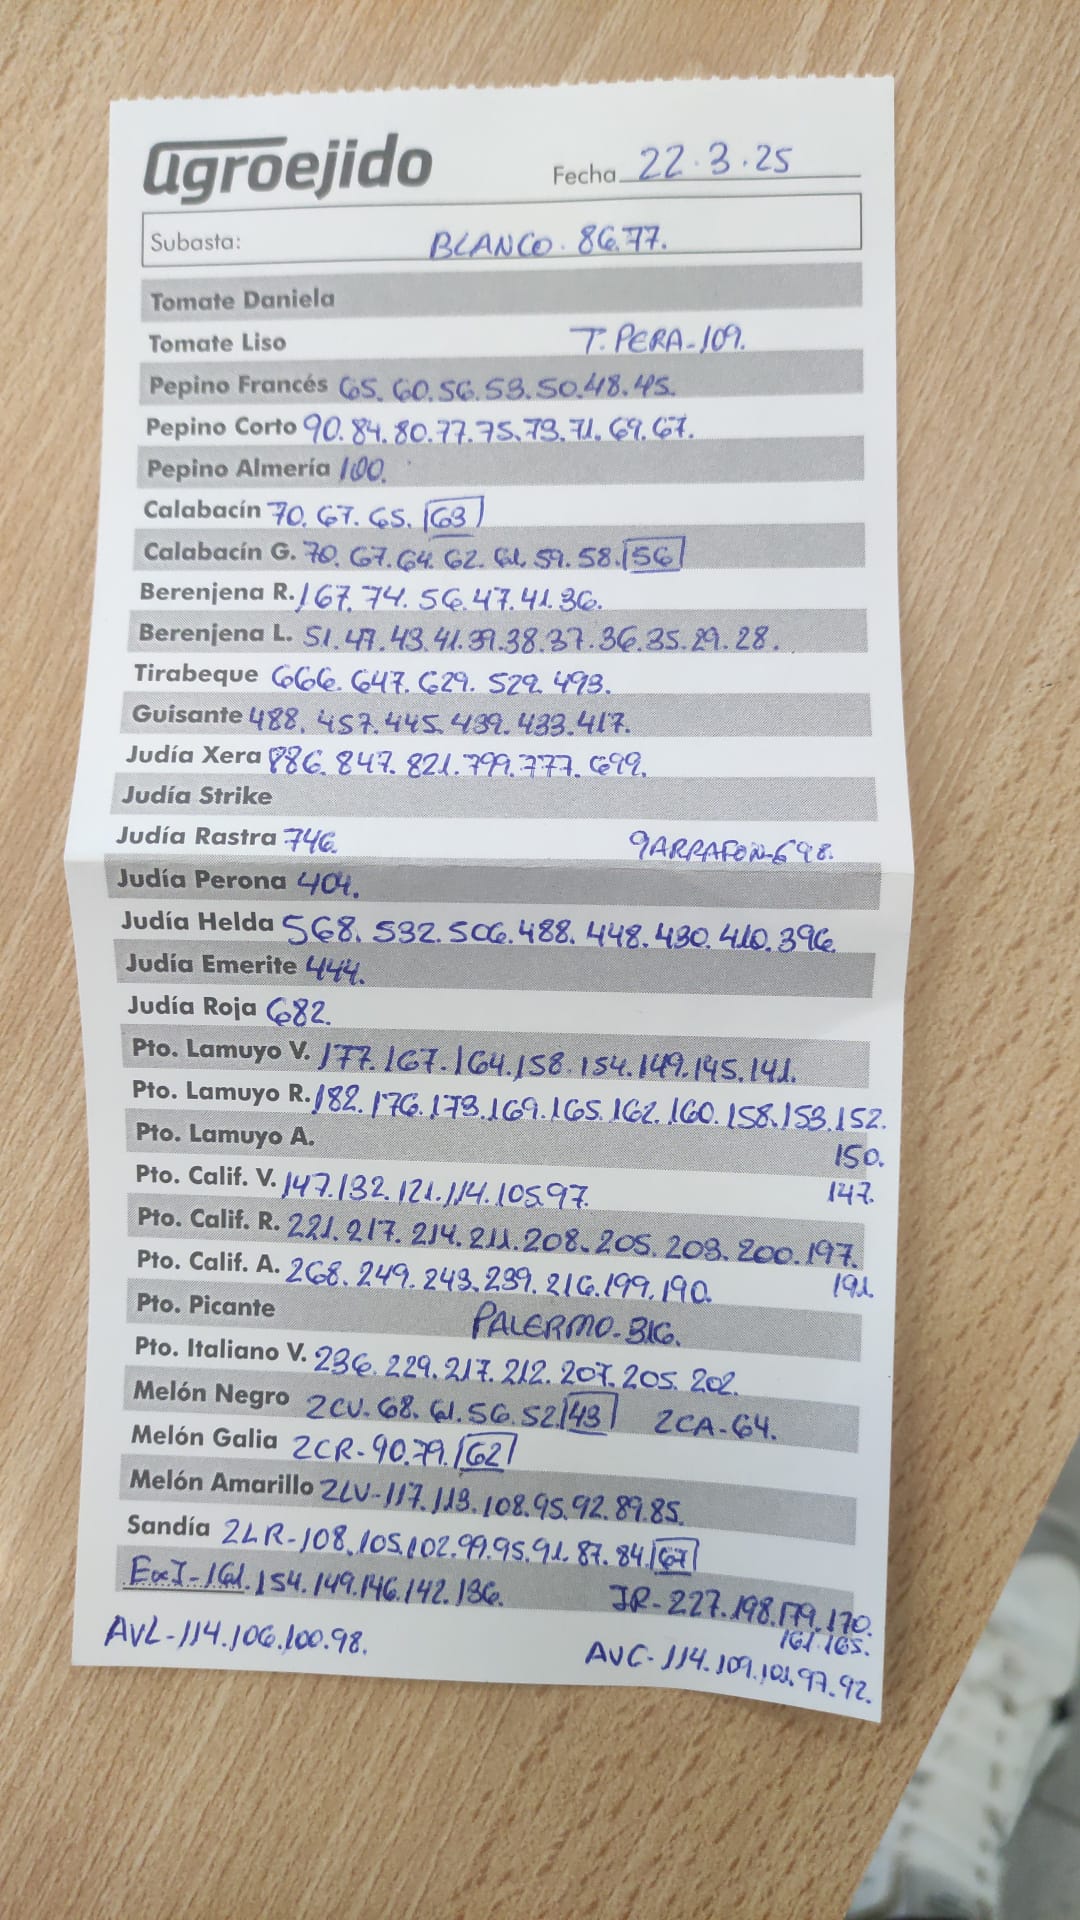 agroejido Fecha 22.3.25
Subasta: BLANCO. 86.77.
Tomate Daniela
Tomate Liso T. PERA-109.
Pepino Francés 65. 60. 56. 53. 50. 48. 45.
Pepino Corto 90. 84. 80. 77. 75. 73. 71. 69. 67.
Pepino Almería 100.
Calabacín 70. 67. 65. 63
Calabacín G. 70. 67. 64. 62. 61. 59. 58. 56
Berenjena R. 167. 74. 56. 47. 41. 36.
Berenjena L. 51. 47. 43. 41. 39. 38. 37. 36. 35. 29. 28.
Tirabeque 666. 647. 629. 529. 493.
Guisante 488. 457. 445. 439. 433. 417.
Judía Xera 886. 847. 821. 799. 777. 699.
Judía Strike
Judía Rastra 746. GARRAFON-698.
Judía Perona 404.
Judía Helda 568. 532. 506. 488. 448. 430. 410. 396.
Judía Emerite 444.
Judía Roja 682.
Pto. Lamuyo V. 177. 167. 164. 158. 154. 149. 145. 141.
Pto. Lamuyo R. 182. 176. 173. 169. 165. 162. 160. 158. 153. 152.
Pto. Lamuyo A. 150.
Pto. Calif. V. 147. 132. 121. 114. 105. 97. 147.
Pto. Calif. R. 221. 217. 214. 211. 208. 205. 203. 200. 197.
Pto. Calif. A. 268. 249. 243. 239. 216. 199. 190. 191.
Pto. Picante PALERMO-316.
Pto. Italiano V. 236. 229. 217. 212. 207. 205. 202.
Melón Negro 2CV. 68. 61. 56. 52. 43 2CA-64.
Melón Galia 2CR-90. 79. 62
Melón Amarillo 2LV-117. 113. 108. 95. 92. 89. 85.
Sandía 2LR-108. 105. 102. 99. 95. 91. 87. 84. 67
ExI-161. 154. 149. 146. 142. 136. JR-227. 198. 179. 170.
161. 165.
AVL-114. 106. 100. 98. AVC-114. 109. 101. 97. 92.